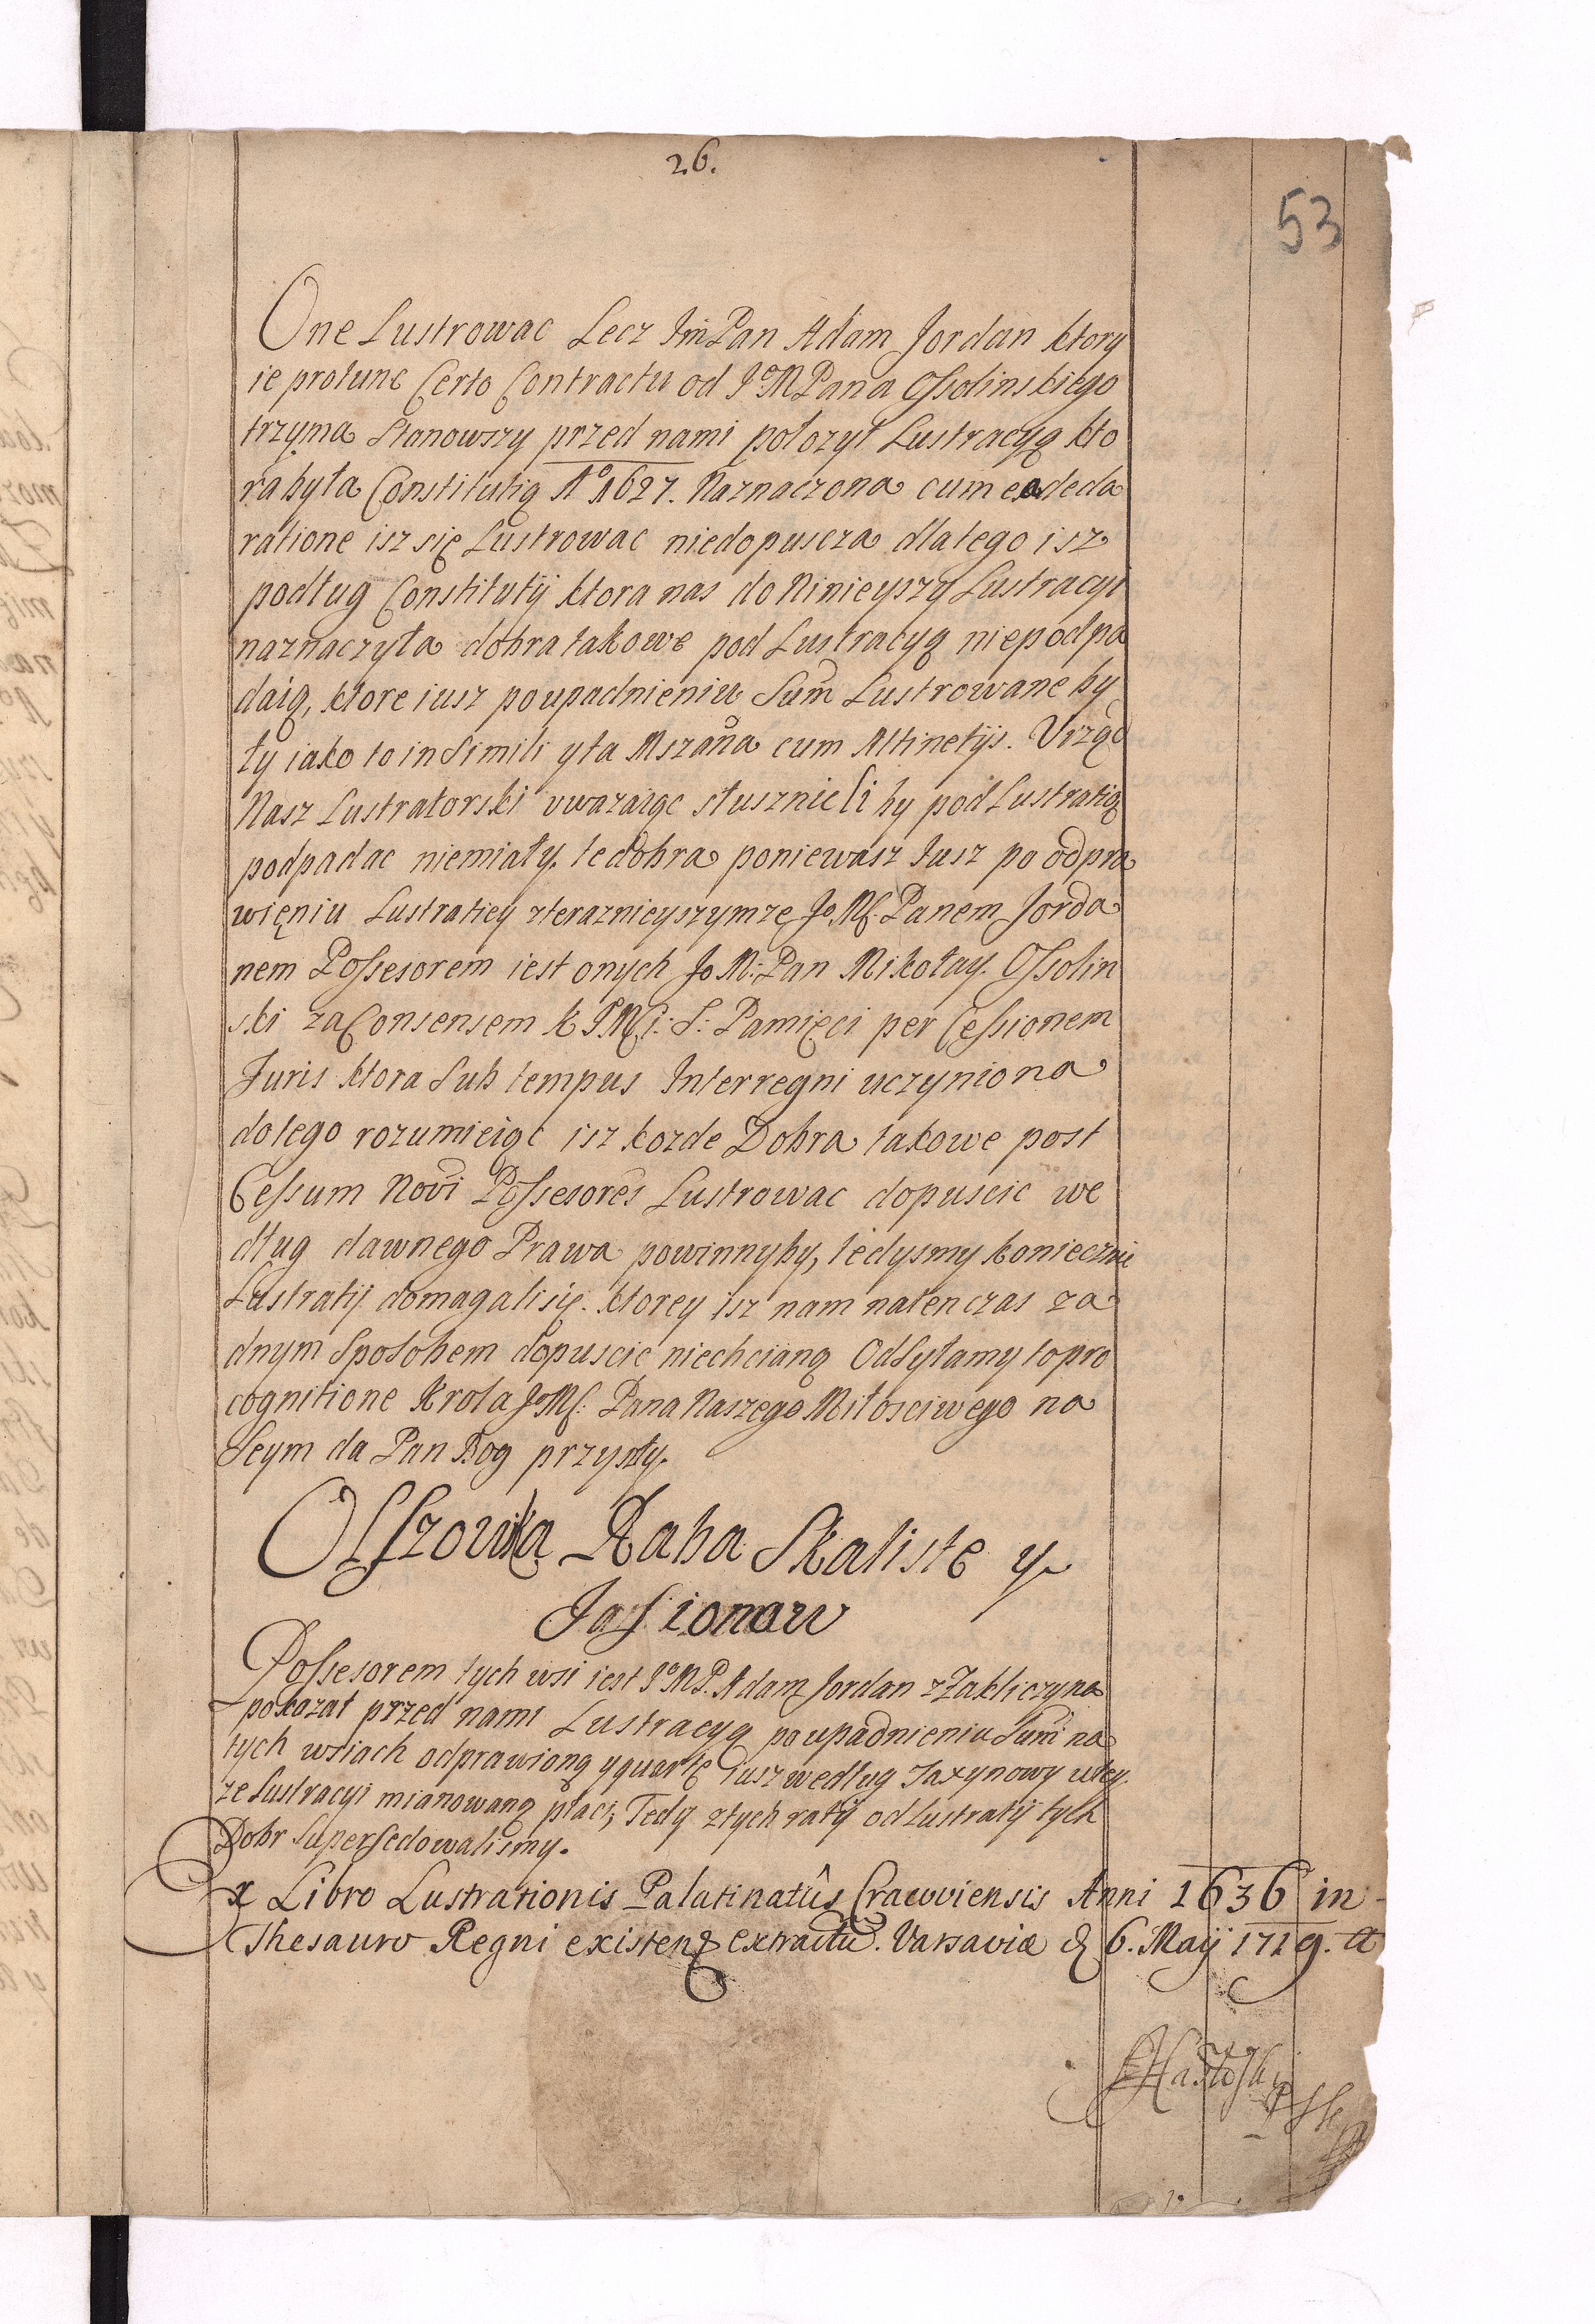 26.
53
One Lustrowac Lecz Jm̃Pan Adam Jordan ktory
ie protunc Certo Contractu od JoMPana Ossolinskiego
trzyma Stanowszy przed nami połozył Lustracyą kto
ra była Constitutią Ao 1627. Naznaczona cum ea decla
ratione isz się Lustrowac niedopuscza dlatego isz
podług Constitutij ktora nas do Ninieyszy Lustracyi
naznaczyła dobra takowe pod Lustracyą niepodpa
daią, ktore iusz po upadnieniu Sum̃ Lustrowane by
ły iako to in Simili yta Mszana cum Attinetijs. Vrząd
Nasz Lustratorski uwazaiąc słusznieli by pod Lustratią
podpadac niemiały, te dobra poniewasz Jusz po odpra
więniu Lustratiey zteraznieyszymze JoMć. Panem Jorda
nem Possesorem iest onych JoM: Pan Mikołay Ossolin
ski za Consensem K JMCi: S: Pamięci per Cessionem
Juris ktora Sub tempus Interregni uczyniona
do tego rozumieiąc isz kozde Dobra takowe post
Cessum Novi Possesores Lustrowac dopuscic we
dług dawnego Prawa powinnyby, tedysmy koniecznie
Lustratij domagali się. ktorey isz nam natenczas za
dnym Sposobem dopuscic niechciano Odsyłamy to pro
cognitione Krola JoMć: Pana Naszego Miłosciwego na
Seym da Pan Bog przyszły.
Olszowka Raba Skaliste y
Jasionow
Possesorem tych wsi iest JoMP. Adam Jordan z Zakliczyna
pokazał przed nami Lustracyą po upadnieniu Sum̃ na
tych wsiach odprawioną y quartę iusz według Taxy nowy w tey
ze Lustracyi mianowaną płaci, Tedy z tych ratij od Lustratij tych
Dobr Supersedowalismy.
Ex Libro Lustrationis Palatinatûs Cracoviensis Anni 1636 in
Thesauro Regni existen extractu. Varsaviæ d 6. Maij 1719. a